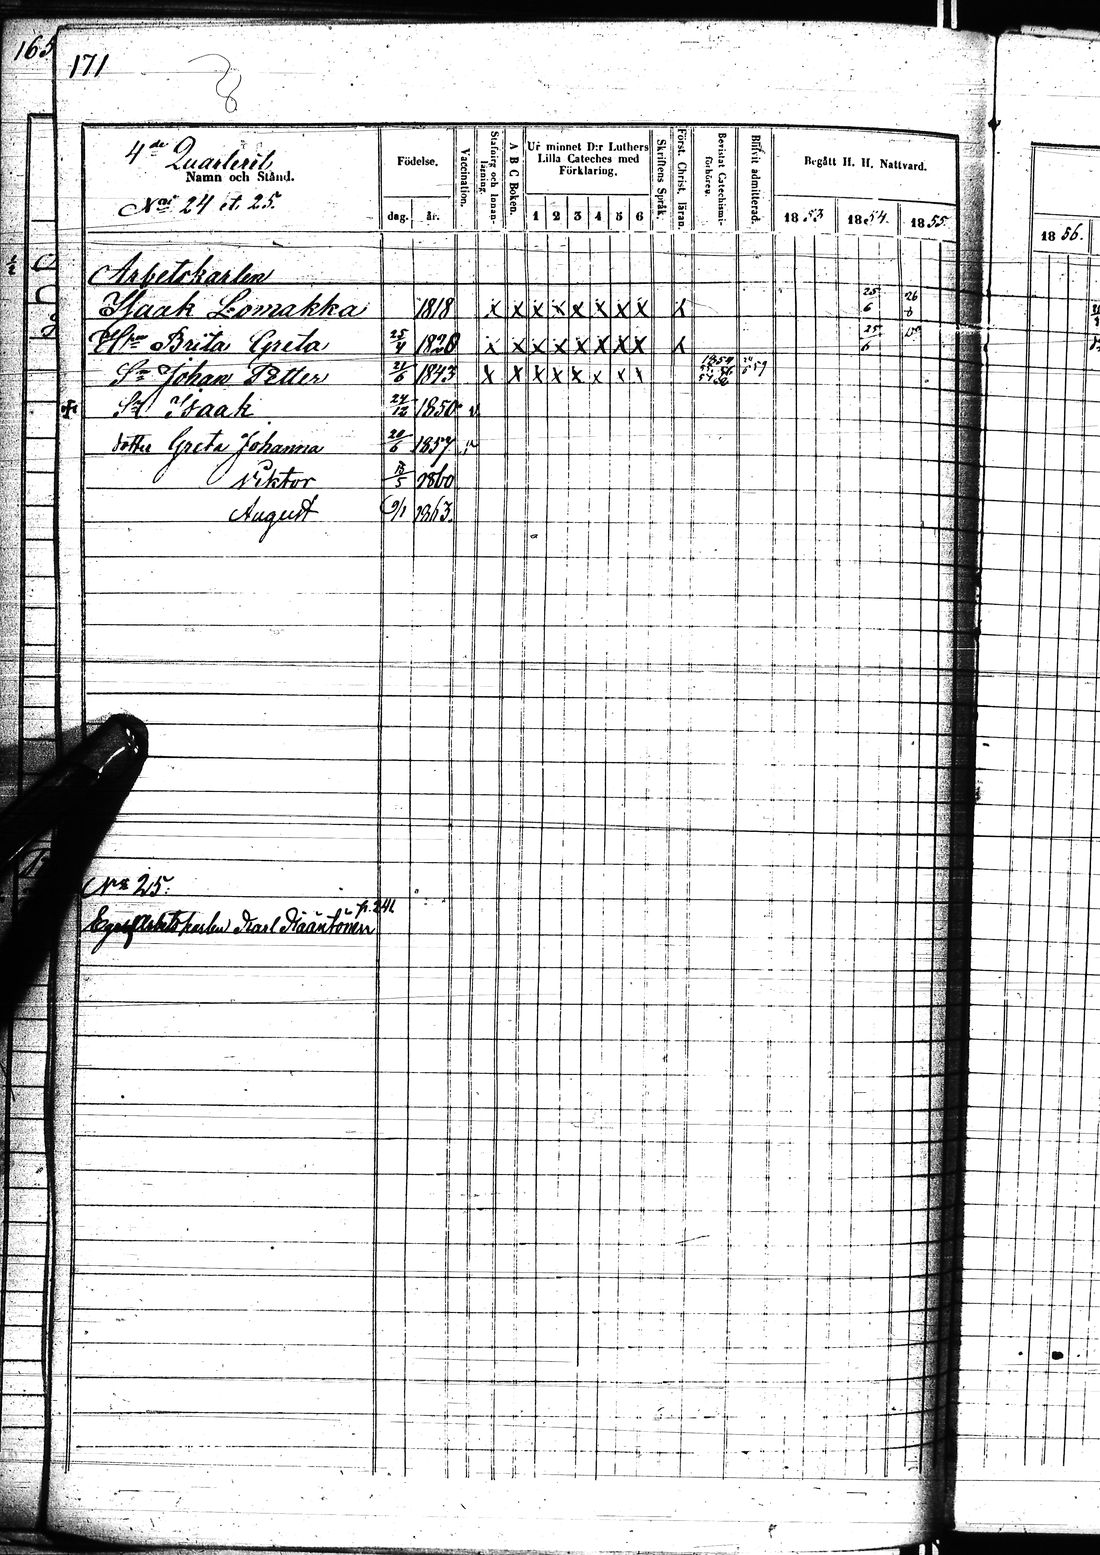 165
171
4de Quarteret
Namn och Stånd.
Nris 24 et 25.
Födelse.
dag. år.
Vaccination.
Stafning och Innanläsning.
A B C Boken.
Ur minnet D:r Luthers Lilla Cateches med Förklaring.
1 2 3 4 5 6
Skriftens Språk.
Först. Christ. läran.
Bevistat Catechismi-förhören.
Blifvit admitterad.
Begått H. H. Nattvard.
1853 1854. 1855.
1856.
Arbetskarlen
Isaak Lomakka 1818 x x x x x x x x 25/6 26
Hu Brita Greta 25/4 1820 x x x x x x x x 25/6
Sn Johan Petter 21/6 1843 x x x x x x x x 1854 59
Sn Isaak 24/12 1850 v
dotter Greta Johanna 20/6 1857
Viktor 13/5 1860
August 9/1 1863.
No 25.
p. 241
Arbetskarlen Karl Kääntönen